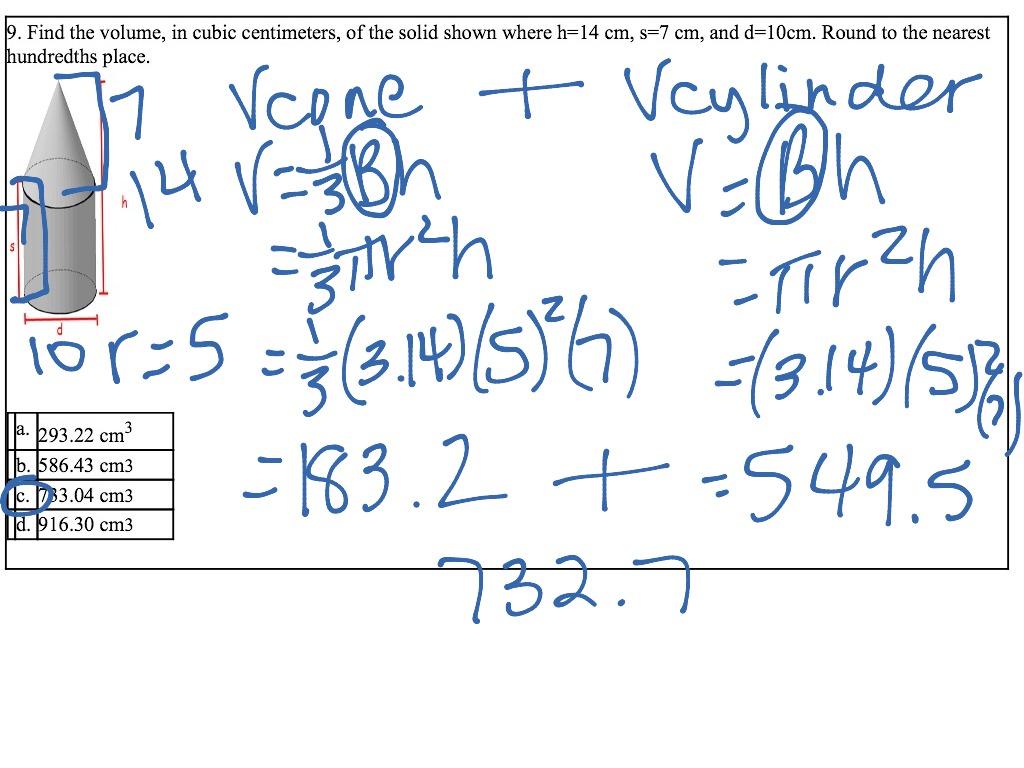 9. Find the volume, in cubic centimeters, of the solid shown where h=14 cm, s=7 cm, and d=10cm. Round to the nearest
hundredths place.
7 Vcone + Vcylinder
14 h V=1/3Bh V=Bh
7 s =1/3πr²h =πr²h
d
10 r=5 =1/3(3.14)(5)²(7) =(3.14)(5)²(7)
a. 293.22 cm³
b. 586.43 cm3
c. 733.04 cm3
d. 916.30 cm3
=183.2 + =549.5
732.7